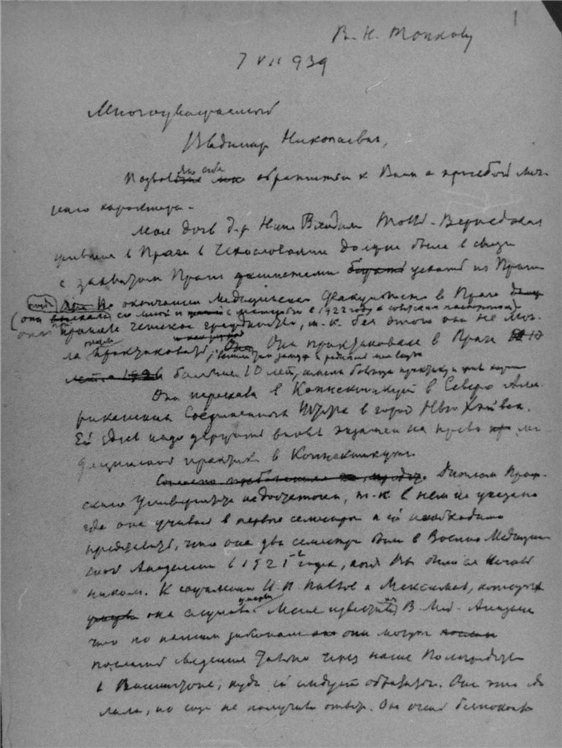 1
В. Н. Тонкову
7 VII 939
Многоуважаемый
Владимир Николаевич,
Позвольте себе обратиться к Вам с просьбой лич-
ного характера.
Моя дочь д-р Нина Владим. Толль-Вернадская
жившая в Праге в Чехословакии должна была в связи
с захватом Праги фашистами уехать из Праги
По окончании Медицинского факультета в Праге
(она выехала со мной и с матерью в 1922 году с советским паспортом)
она приняла чешское гражданство, т. к. без этого она не мог-
ла практиковать. Она практиковала в Праге
больше 10 лет, имела большую практику и
Она переехала в Коннектикут в Северо Аме-
риканских Соединенных Штатах в город Нью Хэвен.
Ей здесь надо держать вновь экзамен на право ме-
дицинской практики в Коннектикуте.
Диплом Праж-
ского Университета недостаточен, т. к. в нем не указано
где она училась в первые семестры и ей необходимо
представить, что она два семестра была в Военно Медицин-
ской Академии в 1921-2 годах, когда Вы были ее началь-
ником. К сожалению И. П. Павлов и Максимов, которых
она слушала умерли. Меня известили в Мед. Академии
что по нашим законам они могут
послать сведения только через наше Полпредство
в Вашингтоне, куда ей следует обратиться. Она это сде-
лала, но еще не получила ответа. Она очень беспокоится